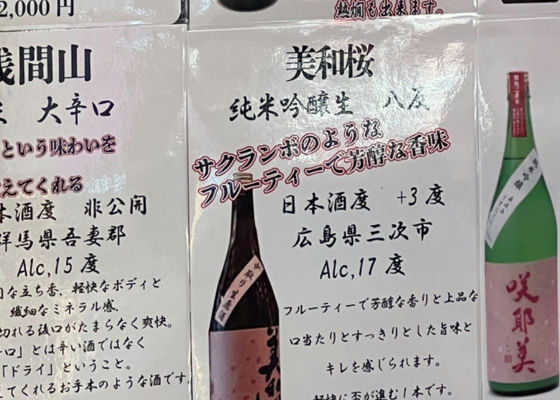 2,000円
熱燗も出来ます。
浅間山
大辛口
という味わいを
えてくれる
本酒度 非公開
群馬県吾妻郡
Alc,15 度
な立ち香、軽快なボディと
繊細なミネラル感、
切れる後口がたまらなく爽快。
口」とは辛い酒ではなく
「ドライ」ということ。
てくれるお手本のような酒です
美和桜
純米吟醸生 八反
サクランボのような
フルーティーで芳醇な香味
日本酒度 +3 度
広島県三次市
Alc,17 度
フルーティーで芳醇な香りと上品な
口当たりとすっきりとした旨味と
キレを感じられます。
軽快に盃が進む1本です。
中取り生原酒
美和
純米吟醸
咲耶美